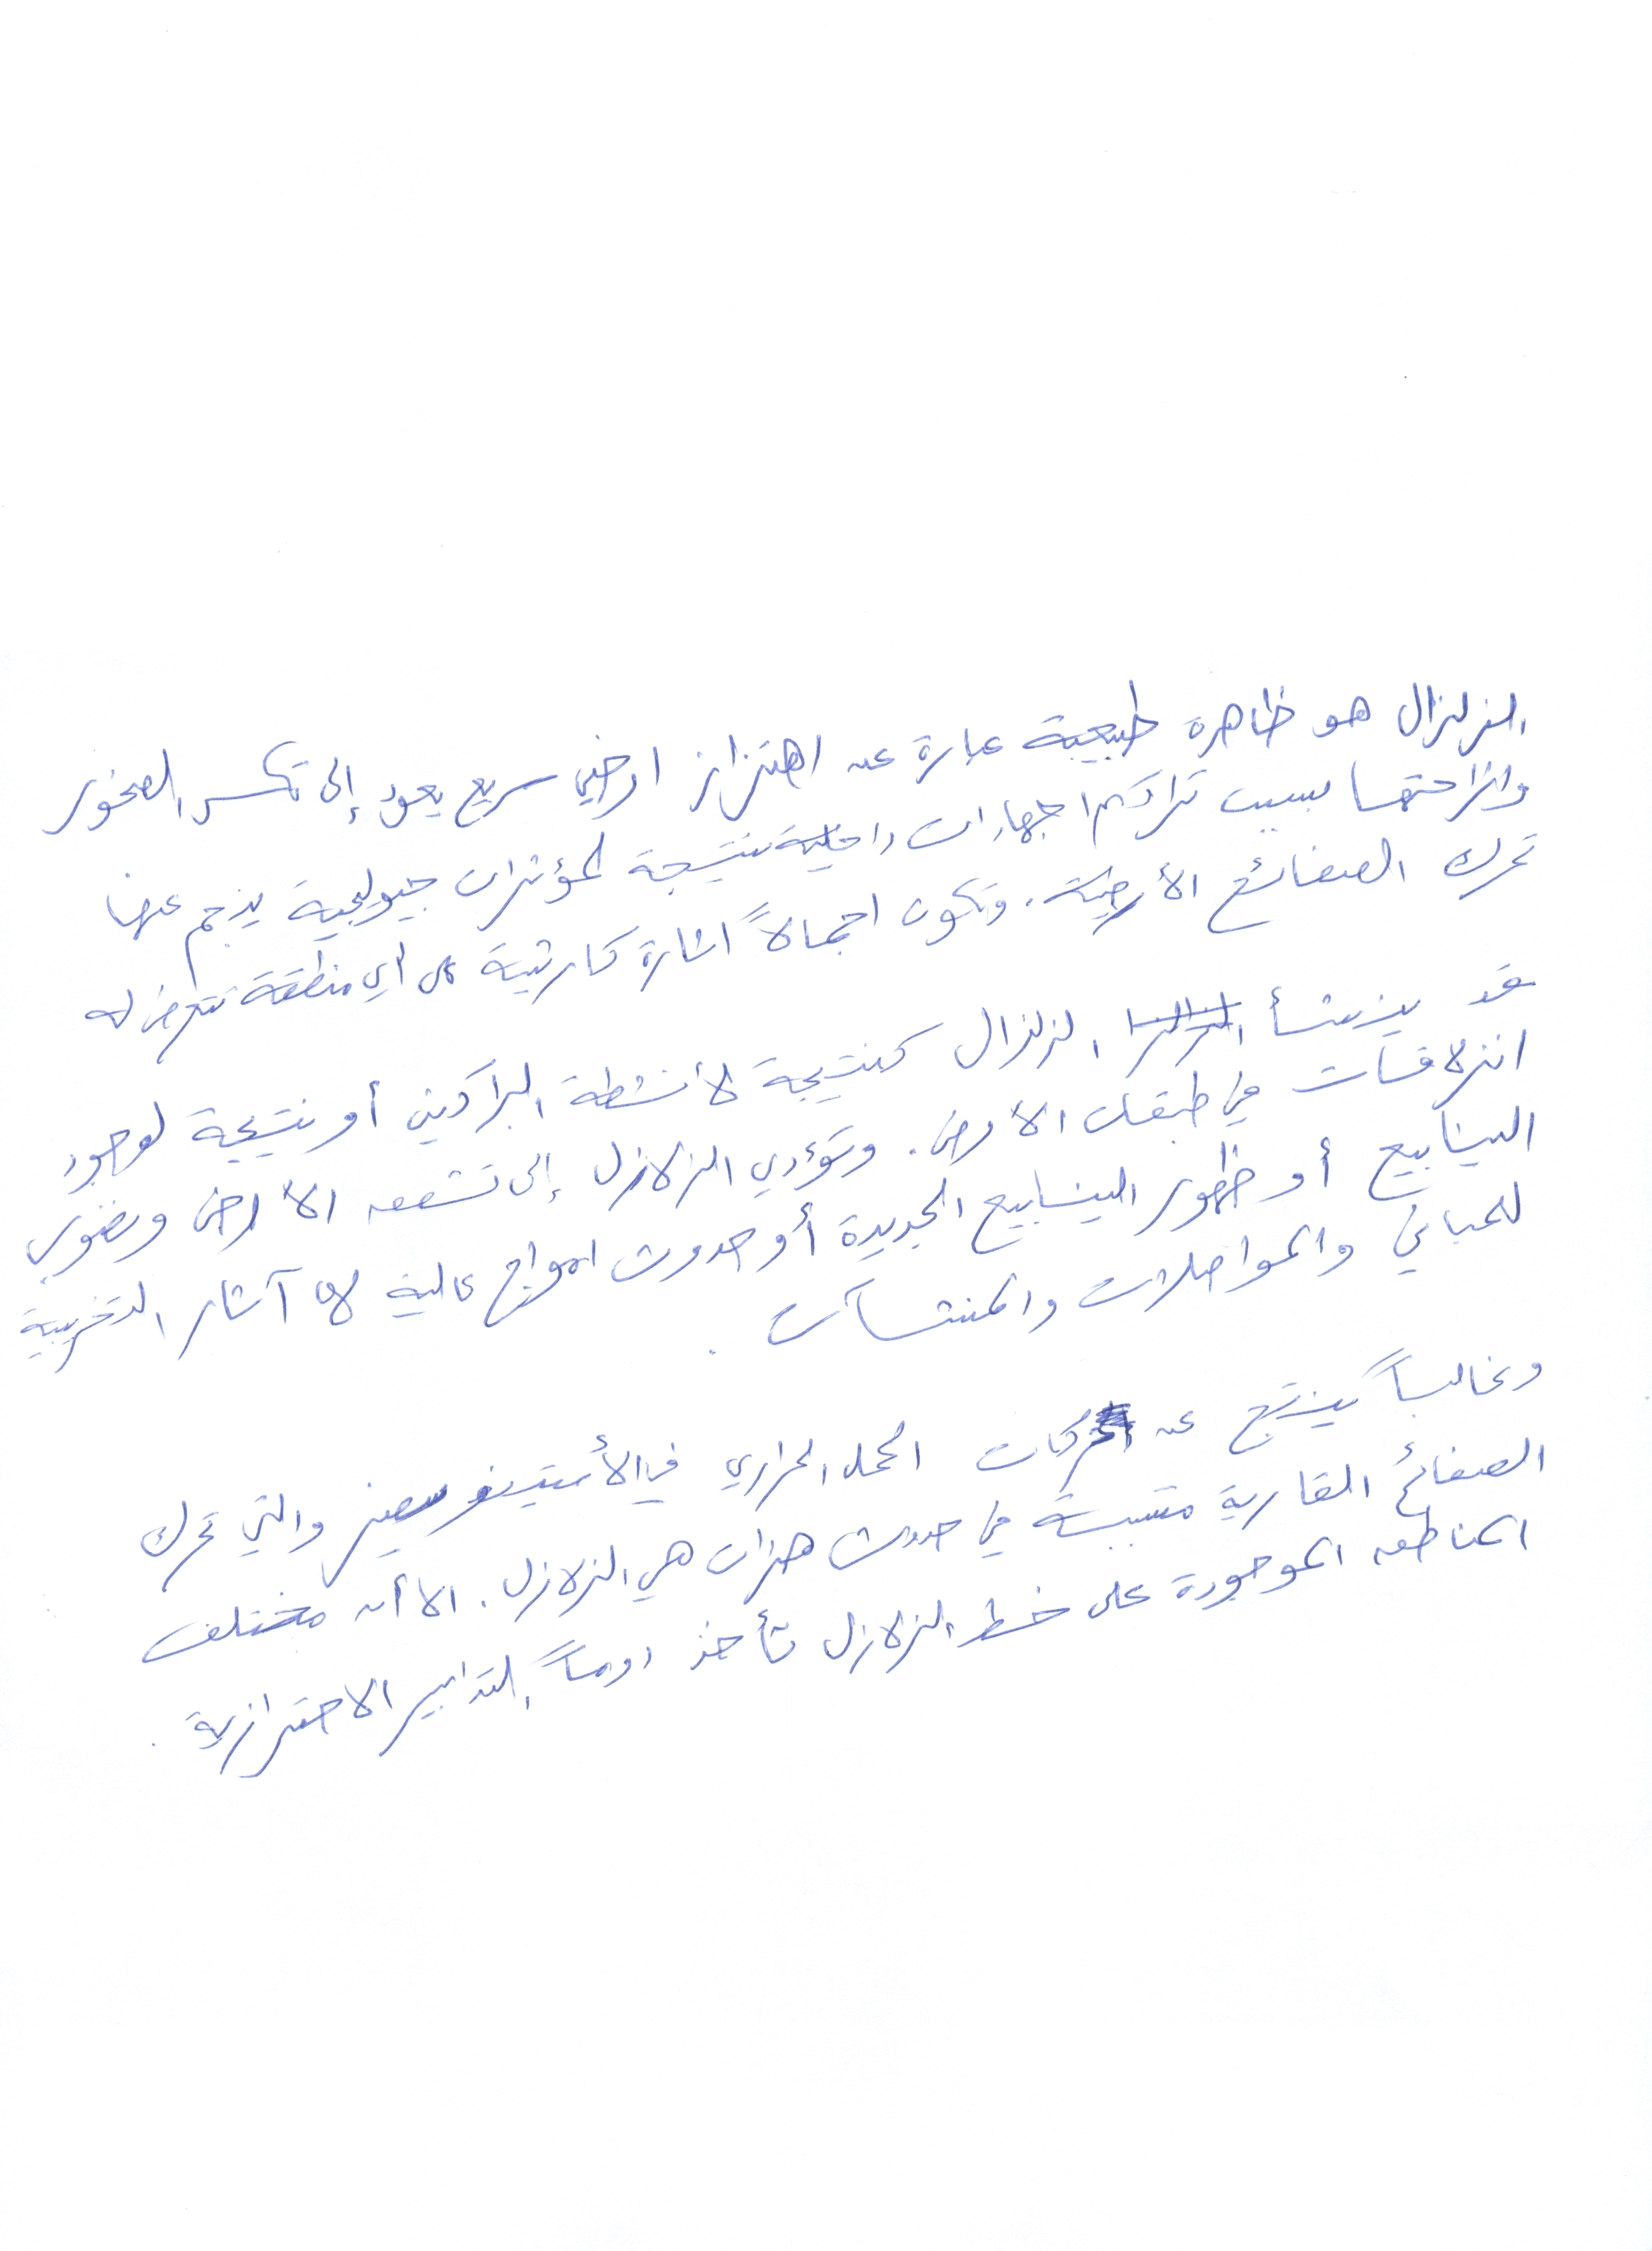 الزلزال هو ظاهرة طبيعية عبارة عن اهتزاز ارضي سريع يعود إلى تكسر الصخور
وانزاحتها بسبب تراكم اجهادات داخلية نتيجة لمؤثرات جيولجية ينجم عنها
تحرك الصفائح الأرضية. وتكون اجمالاً اثارة كارثية على أي منطقة تتعرض له
قد ينشأ الزلزال كنتيجة لأنشطة البراكين أو نتيجة لوجود
انزلاقات في طبقات الارض. وتؤدي الزلازل إلى تشقق الأرض ونضوب
الينابيع أو ظهور الينابيع الجديدة أو حدوث امواج عالية الا آثار التخريبية
للمباني والمواصلات والمنشآت.
وغالباً ينتج عن حركات الحمل الحراري في الأستينوسفير والتي تحرك
الصفائح القارية متسببة في حدوث هزات هي الزلازل. الا أن مختلف
المناطق الموجودة على خط الزلازل تأخذ دوماً التدابير الاحترازية.